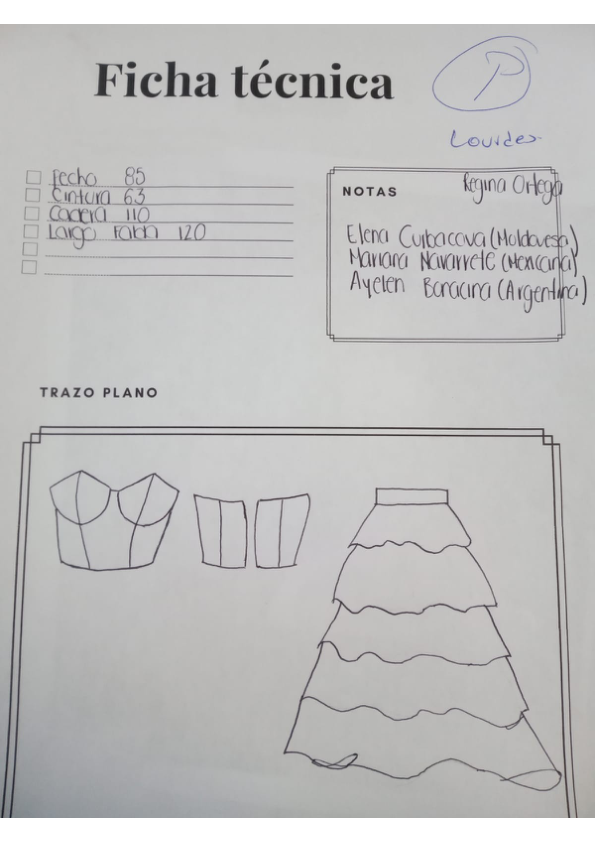 Ficha técnica
P
Lourdes
Pecho 85
Cintura 63
Cadera 110
Largo Falda 120
NOTAS
Regina Ortega
Elena Curbacova (Moldavesa)
Mariana Navarrete (Mexicana)
Ayelen Bonacina (Argentina)
TRAZO PLANO